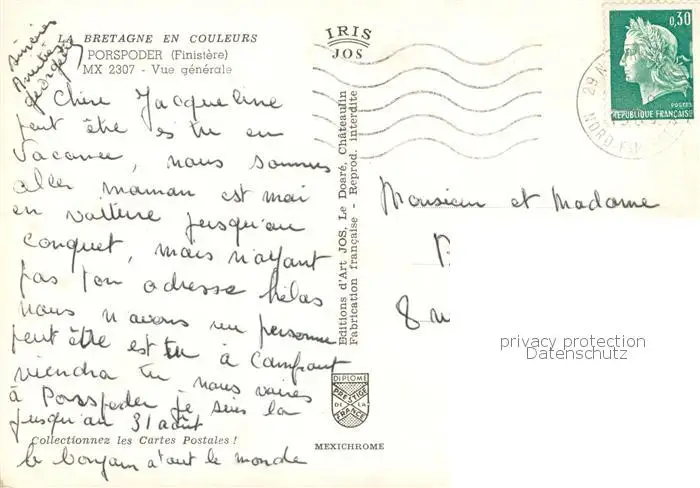 LA BRETAGNE EN COULEURS
PORSPODER (Finistère)
MX 2307 - Vue générale
sincères
Amitiés
georgette
Chère Jacqueline
peut être es tu en
vacance, nous sommes
aller maman est moi
en voiture jusqu'au
conquet, mais n'ayant
pas ton adresse hélas
nous n'avons vu personne
peut être est tu à Lampaut
viendra tu nous voires
à Porspoder je suis la
jusqu'au 31 août
Collectionnez les Cartes Postales !
le bonjour a tout le monde
IRIS
JOS
Editions d'Art JOS, Le Doaré, Châteaulin
Fabrication française - Reprod. interdite
DIPLOME
PRESTIGE
DE LA
FRANCE
MEXICHROME
0,30
POSTES
REPUBLIQUE FRANÇAISE
29 N
NORD FIN
Monsieur et Madame
8
privacy protection
Datenschutz